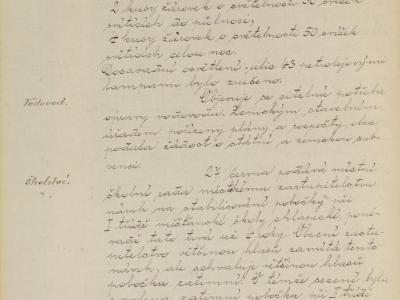 2 kusy žárovek o světelnosti 50 svíček
svítících do půlnoci,
4 kusy žárovek o světelnosti 50 svíček
svítících celou noc.
Dosavadní osvětlení ulic 43 petrolejovými
lampami bylo zrušeno.
Vodovod.
Objevuje se citelná potřeba
opravy vodovodu. Zemským stavebním
úřadem pořízeny plány a rozpočty, obec
podala žádost o státní a zemskou sub-
venci.
Školství.
27. června podává místní
školní rada městskému zastupitelstvu
návrh na stabilisování pobočky při
I třídě měšťanské školy chlapecké, poně-
vadž tato trvá už 4 roky. Obecní zastu-
pitelstvo většinou hlasů zamítá tento
návrh, ale schvaluje většinou hlasů
pobočku zatímní. V témže sezení byla
zatímní pobočka při I třídě